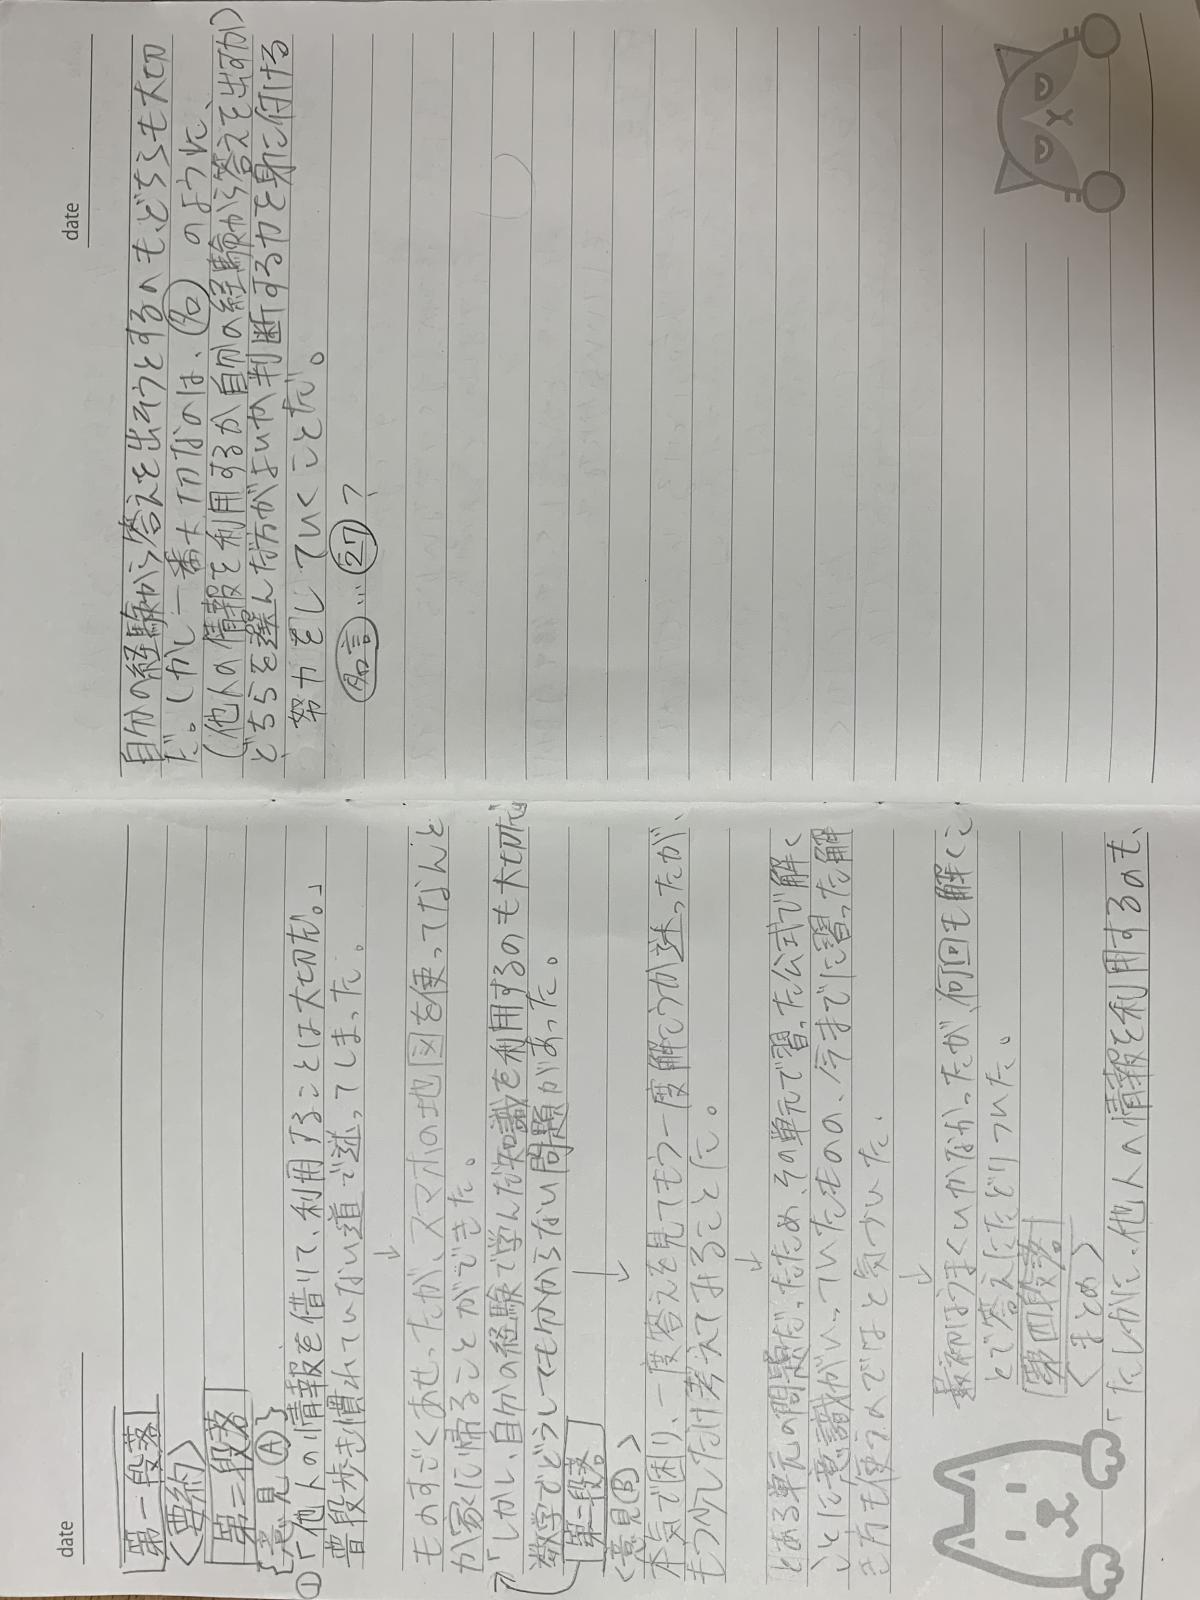 date
第一段落
<要約>
第二段落
{意見Ⓐ}
①「他人の情報を借りて、利用することは大切だ。」
普段歩き慣れていない道で迷ってしまった。
↓
ものすごくあせったが、スマホの地図を使ってなんと
か家に帰ることができた。
「しかし、自分の経験で学んだ知識を利用するのも大切だ」
数学でどうしても分からない問題があった。
第三段落
<意見Ⓑ>
↓
本気で困り、一度答えを見てもう一度解こうか迷ったが、
もう少しだけ考えてみることにした。
↓
とある単元の問題だったため、その単元で習った公式で解く
ことに意識がいっていたものの、今までに習った解
き方も使うのではと気づいた。
↓
最初はうまくいかなかったが、何回も解くこ
とで答えにたどりついた。
第四段落
<まとめ>
「たしかに、他人の情報を利用するのも、
date
自分の経験から答えを出そうとするのも、どちらも大切
だ。しかし一番大切なのは、㊔のように、
(他人の情報を利用するか自分の経験から答えを出すか)
どちらを選んだ方がよいか判断する力を身に付ける
努力をしていくことだ。
名言…㉗